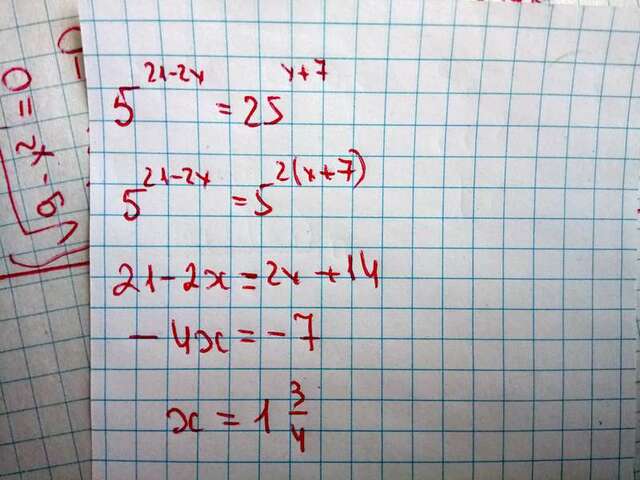 5^{21-2x} = 25^{x+7}
5^{21-2x} = 5^{2(x+7)}
21-2x=2x+14
-4x=-7
x = 1 3/4